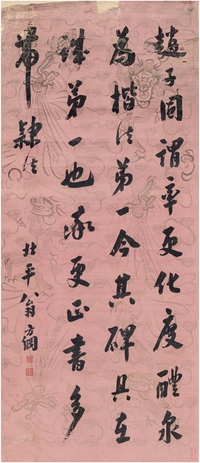 趙子固謂率更化度醴泉
為楷法第一今其碑具在
誠第一也率更正書多
帶隸法
北平翁方綱